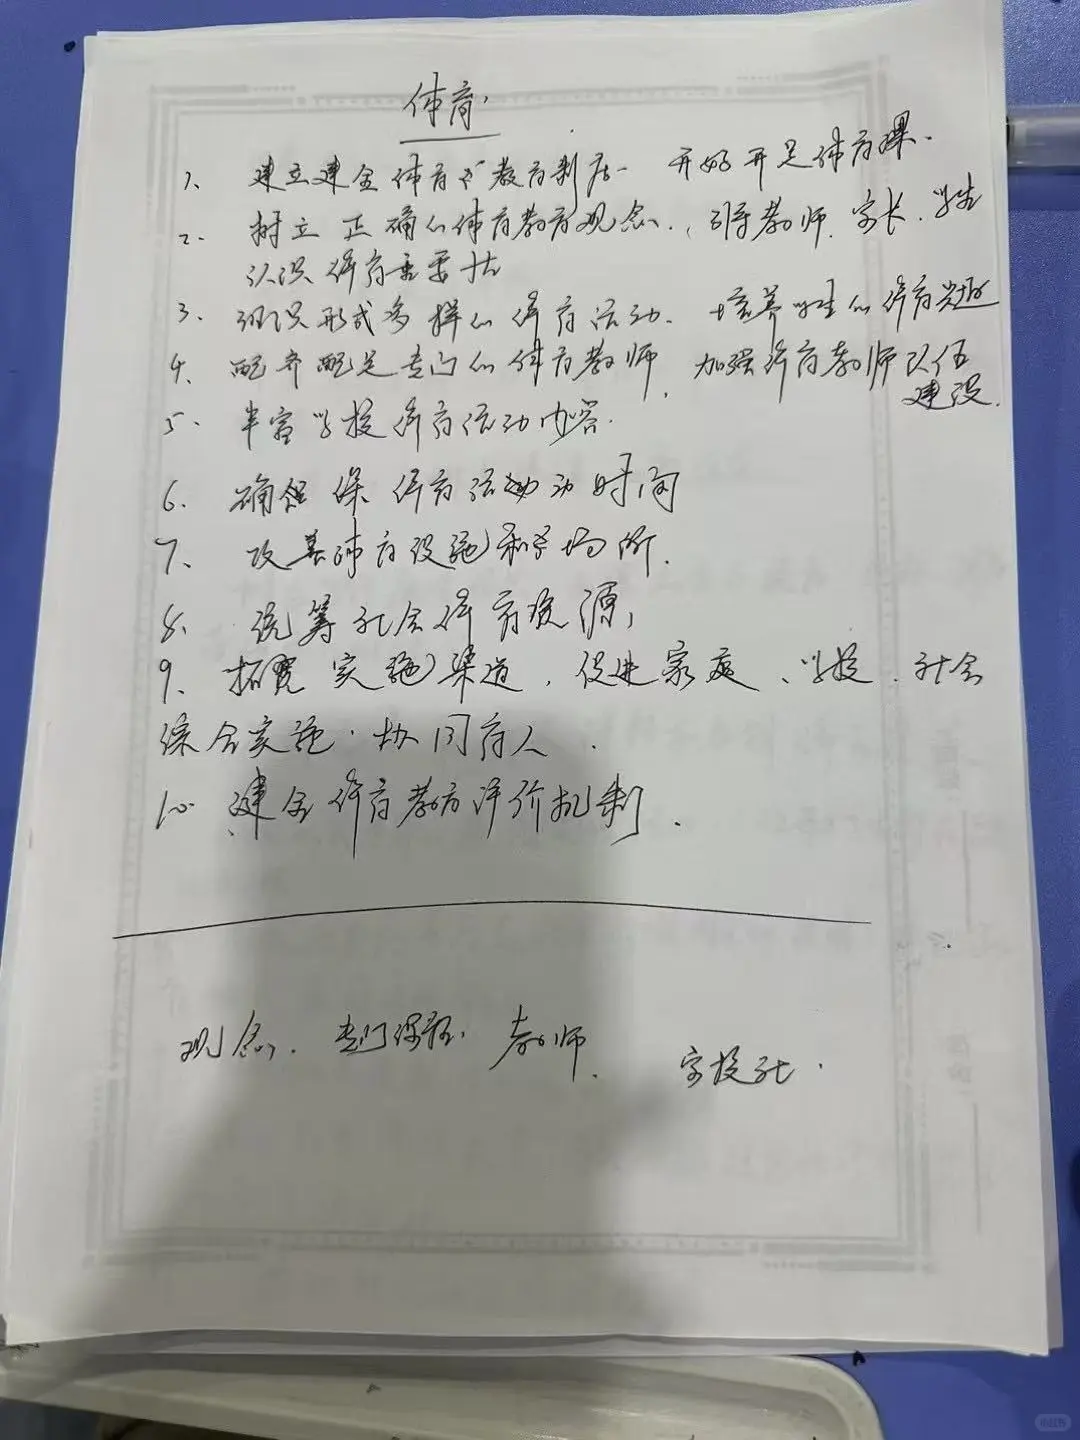 体育.
1、建立建全体育教育制度. 开好开足体育课.
2. 树立正确的体育教育观念., 引导教师. 家长. 学生
认识体育重要性
3. 组织形式多样的体育活动. 培养学生的体育兴趣
4. 配齐配足专门的体育教师. 加强体育教师队伍
建设.
5. 丰富学校体育活动内容.
6. 确保体育活动时间
7. 改善体育设施和场所.
8. 统筹社会体育资源,
9、拓宽实施渠道. 促进家庭、学校. 社会
综合实施. 协同育人.
10. 建全体育教育评价机制.
观念. 专门课程. 教师. 家校社.